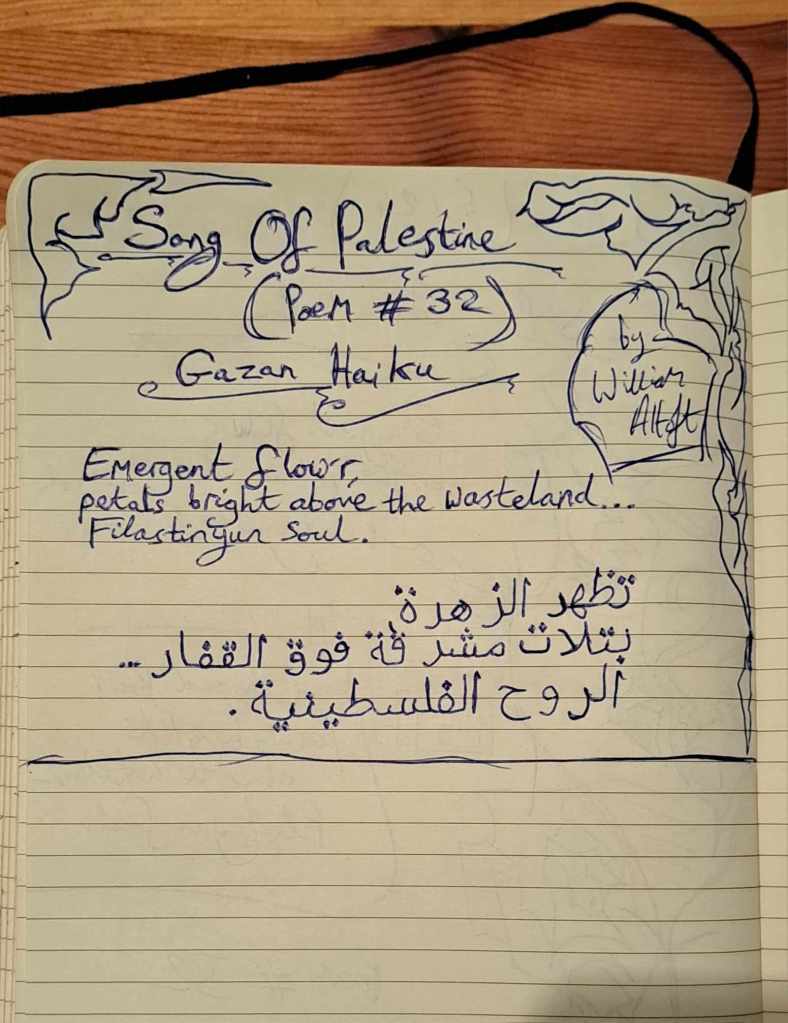 Song Of Palestine
(Poem # 32)
Gazan Haiku
by
William
Altoft
Emergent flow'r,
petals bright above the wasteland...
Filastinyun Soul.
تظهر الزهرة,
بتلات مشرقة فوق القفار...
الروح الفلسطينية.